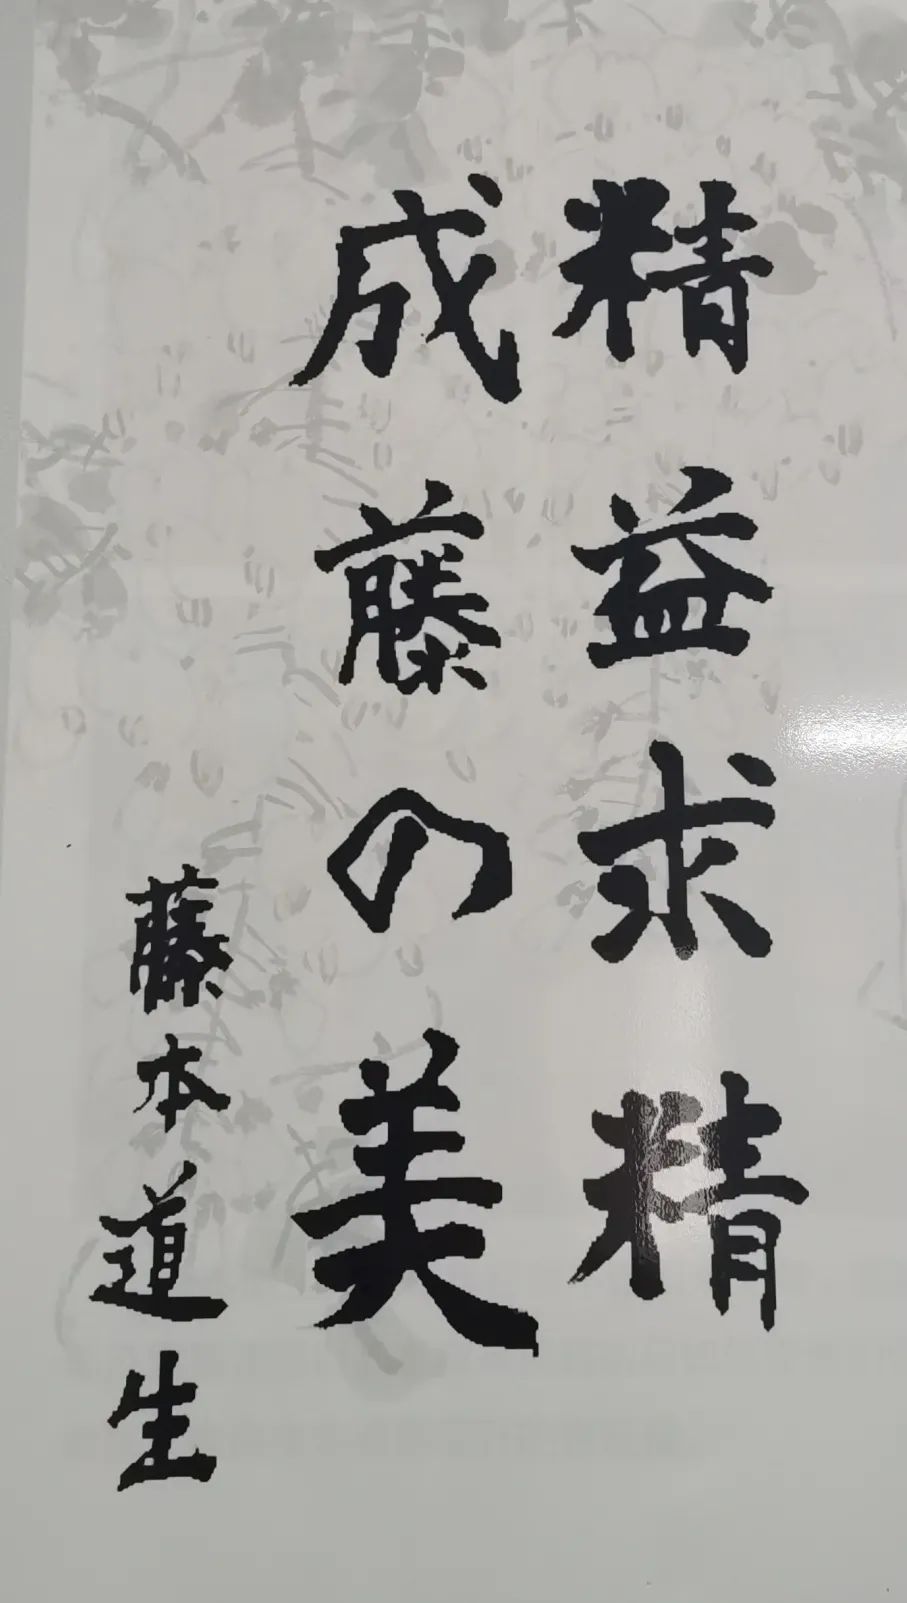 精益求精
成藤の美
藤本道生